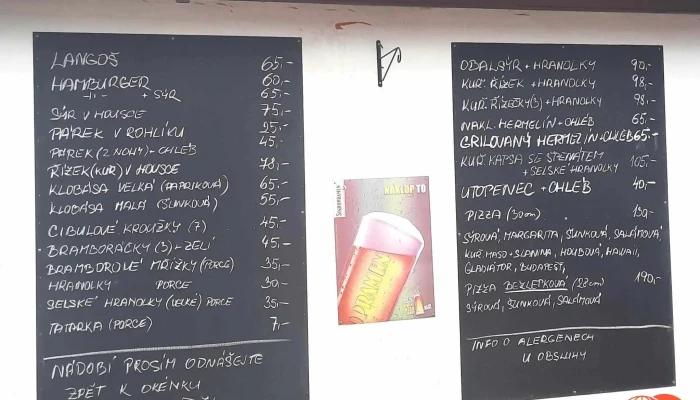 LANGOŠ 65,-
HAMBURGER 60,-
-"- + SÝR 65,-
SÝR V HOUSCE 75,-
PÁREK V ROHLÍKU 25,-
PÁREK (2 NOHY) + CHLÉB 45,-
ŘÍZEK (KUŘ) V HOUSCE 78,-
KLOBÁSA VELKÁ (PAPRIKOVÁ) 65,-
KLOBÁSA MALÁ (ŠUNKOVÁ) 55,-
CIBULOVÉ KROUŽKY (7) 45,-
BRAMBORÁČKY (3) + ZELÍ 45,-
BRAMBOROVÉ MŘÍŽKY (PORCE) 35,-
HRANOLKY PORCE 30,-
SELSKÉ HRANOLKY (VELKÉ) PORCE 35,-
TATARKA (PORCE) 7,-
NÁDOBÍ PROSÍM ODNÁŠEJTE
ZPĚT K OKÉNKU
Staropramen
NAKLOP TO
OBAL. SÝR + HRANOLKY 90,-
KUŘ. ŘÍZEK + HRANOLKY 98,-
KUŘ. ŘÍZEČKY (3) + HRANOLKY 98,-
NAKL. HERMELÍN + CHLÉB 65.-
GRILOVANÝ HERMELÍN + CHLÉB 65.-
KUŘ. KAPSA SE ŠPENÁTEM 105,-
+ SELSKÉ HRANOLKY
UTOPENEC + CHLÉB 40,-
PIZZA (30cm) 130,-
SÝROVÁ, MARGARITA, ŠUNKOVÁ, SALÁMOVÁ,
KUŘ. MASO + SLANINA, HOUBOVÁ, HAWAII,
GLADIÁTOR, BUDAPEST,
PIZZA BEZLEPKOVÁ (28cm) 190,-
SÝROVÁ, ŠUNKOVÁ, SALÁMOVÁ
INFO O ALERGENECH
U OBSLUHY